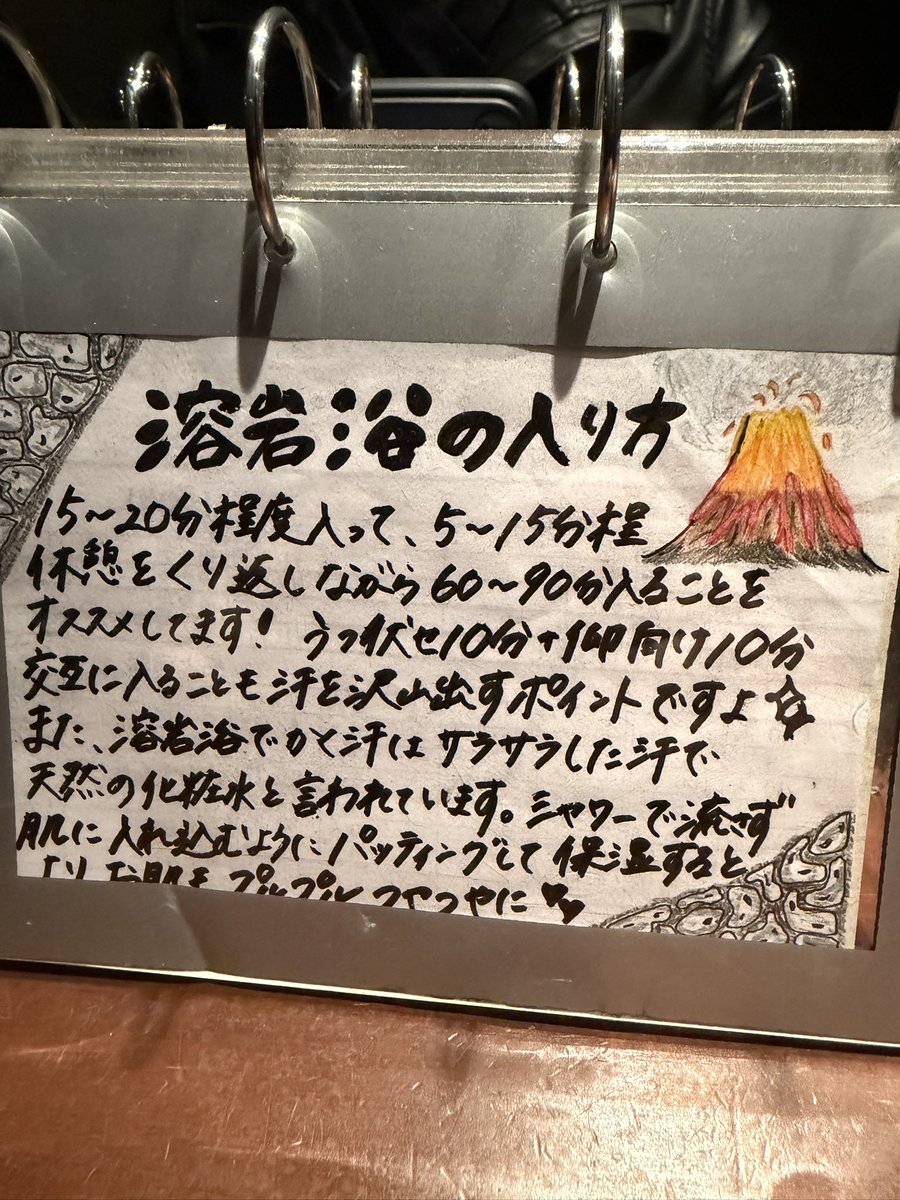 溶岩浴の入り方
15～20分程度入って、5～15分程
休憩をくり返しながら60～90分入ることを
オススメしてます！ うつ伏せ10分+仰向け10分
交互に入ることも汗を沢山出すポイントですよ☆
また、溶岩浴でかく汗はサラサラした汗で
天然の化粧水と言われています。シャワーで流さず
肌に入れ込むようにパッティングして保湿すると
よりお肌もプルプルつやつやに♥